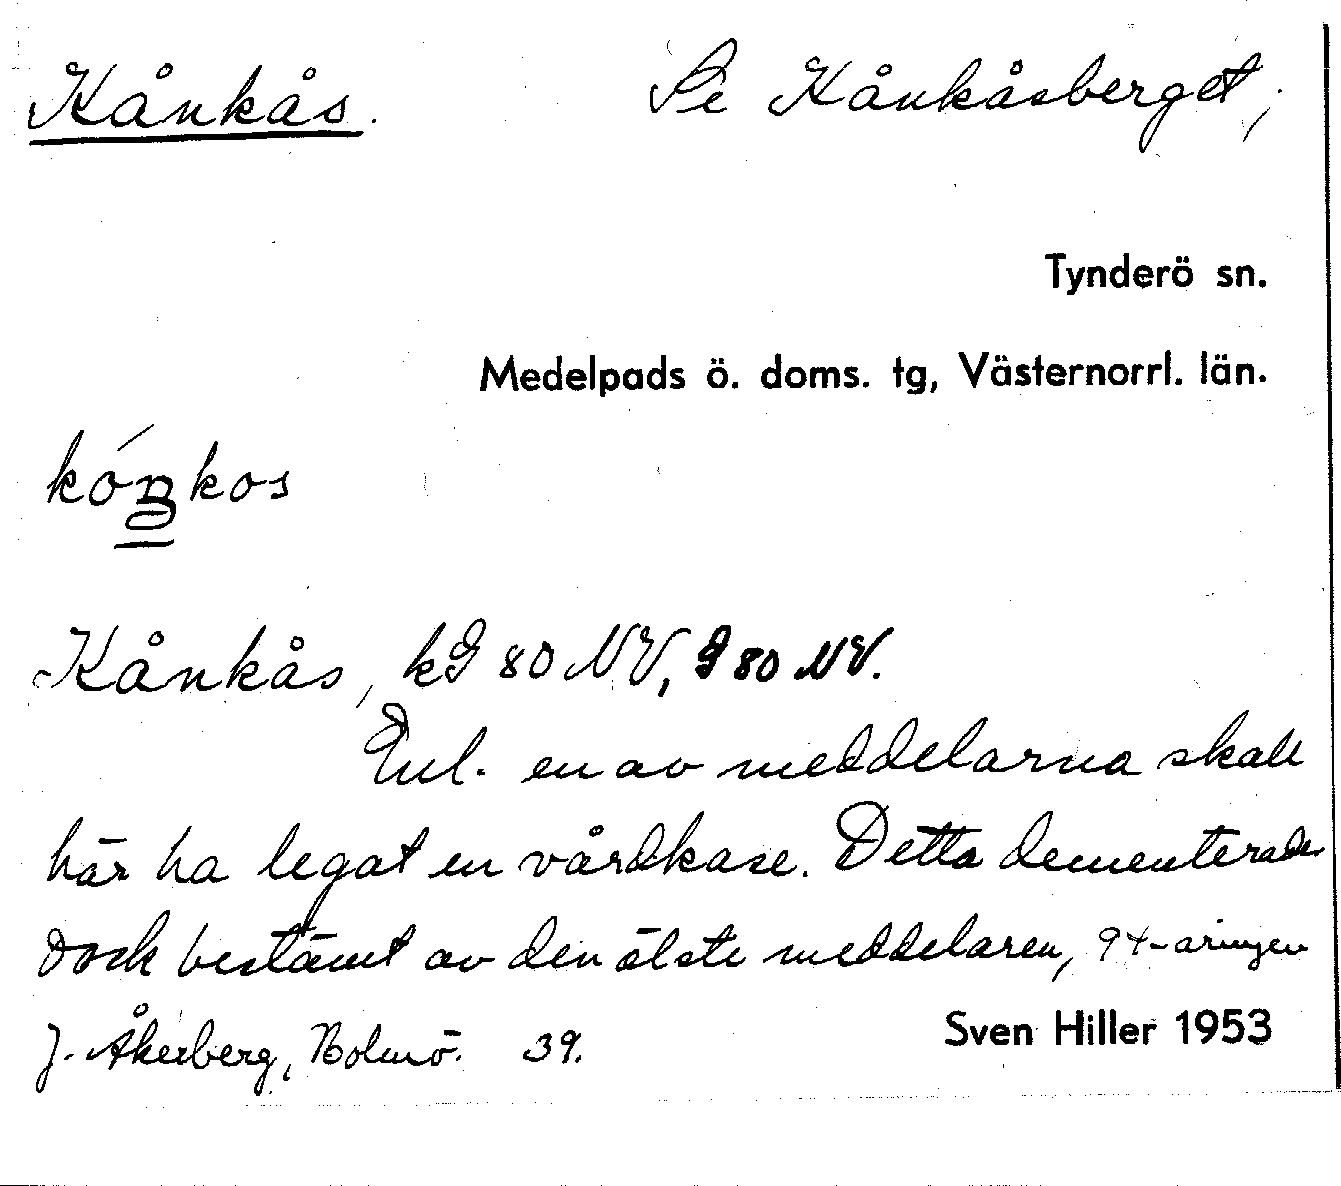 Kånkås. Se Kånkåsberget,
Tynderö sn.
Medelpads ö. doms. tg, Västernorrl. län.
Kånkås, kG 80 NV, G 80 NV.
Enl. en av meddelarna skall
här ha legat en vårdkase. Detta dementerades
dock bestämt av den älste meddelaren, 94-åringen
J. Åkerberg, 39.
Sven Hiller 1953